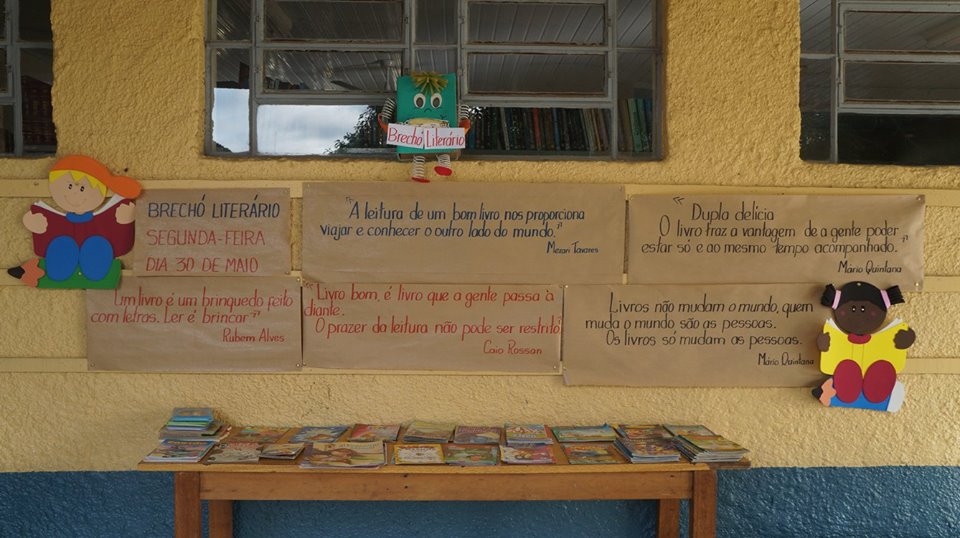 Brechó Literário
BRECHÓ LITERÁRIO
SEGUNDA-FEIRA
DIA 30 DE MAIO
"A leitura de um bom livro nos proporciona
viajar e conhecer o outro lado do mundo."
Mezari Tavares
" Dupla delícia
O livro traz a vantagem de a gente poder
estar só e ao mesmo tempo acompanhado."
Mário Quintana
Um livro é um brinquedo feito
com letras. Ler é brincar."
Rubem Alves
"Livro bom, é livro que a gente passa à
diante.
O prazer da leitura não pode ser restrito"
Caio Rossan
Livros não mudam o mundo, quem
muda o mundo são as pessoas.
Os livros só mudam as pessoas.
Mário Quintana